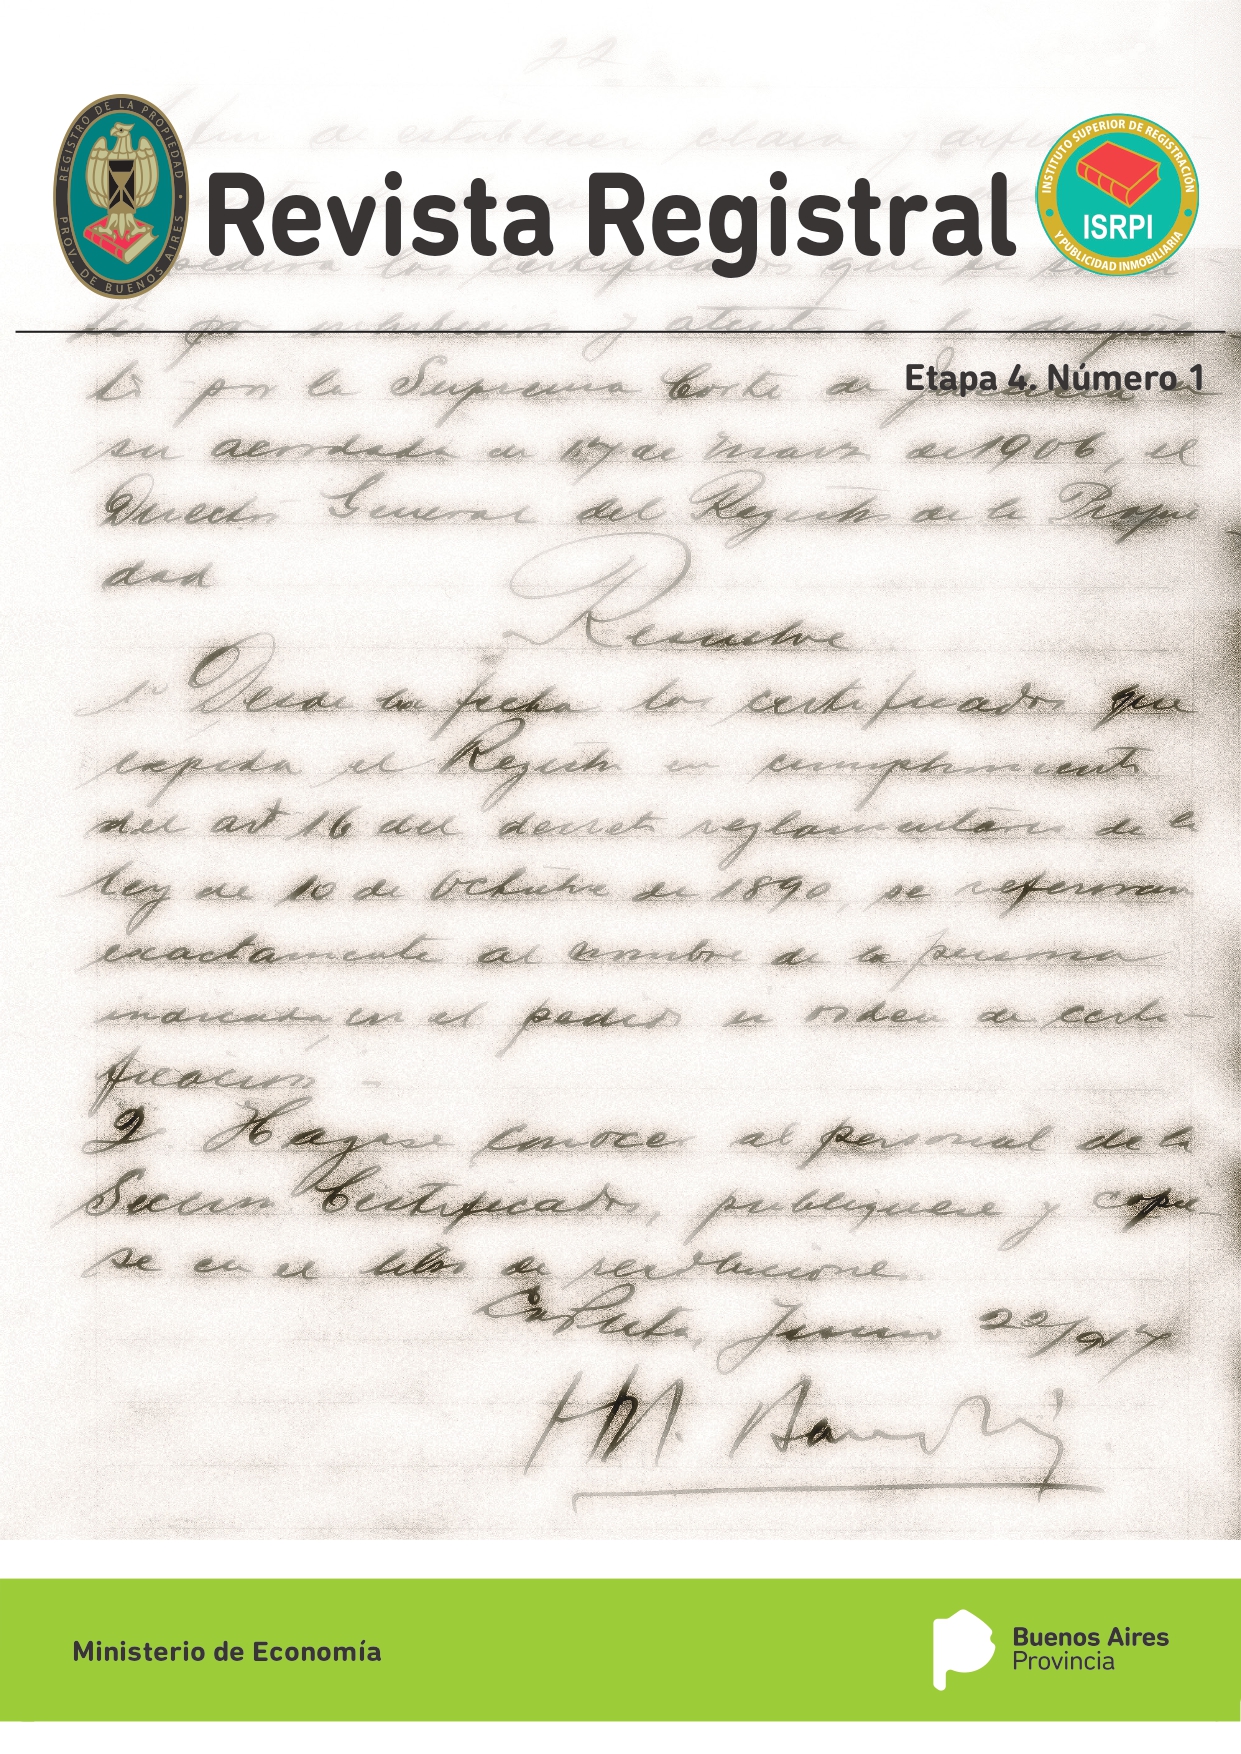 22
REGISTRO DE LA PROPIEDAD • PROV. DE BUENOS AIRES •
Revista Registral
INSTITUTO SUPERIOR DE REGISTRACIÓN
ISRPI
Y PUBLICIDAD INMOBILIARIA
Etapa 4. Número 1
por la Suprema Corte de
su acordada de 17 de marzo de 1906, el
Director General del Registro de la Propie
dad
Resuelve
1º Desde la fecha los certificados que
expida el Registro en cumplimiento
del art 16 del decreto reglamentario de la
ley de 10 de Octubre de 1890, se referiran
exactamente al nombre de la persona
indicada en el pedido u orden de certi-
ficacion -
2º Hagase conocer al personal de la
Seccion Certificados, publiquese y copie
se en el libro de resoluciones.
La Plata, Junio 22/917
Ministerio de Economía
Buenos Aires
Provincia